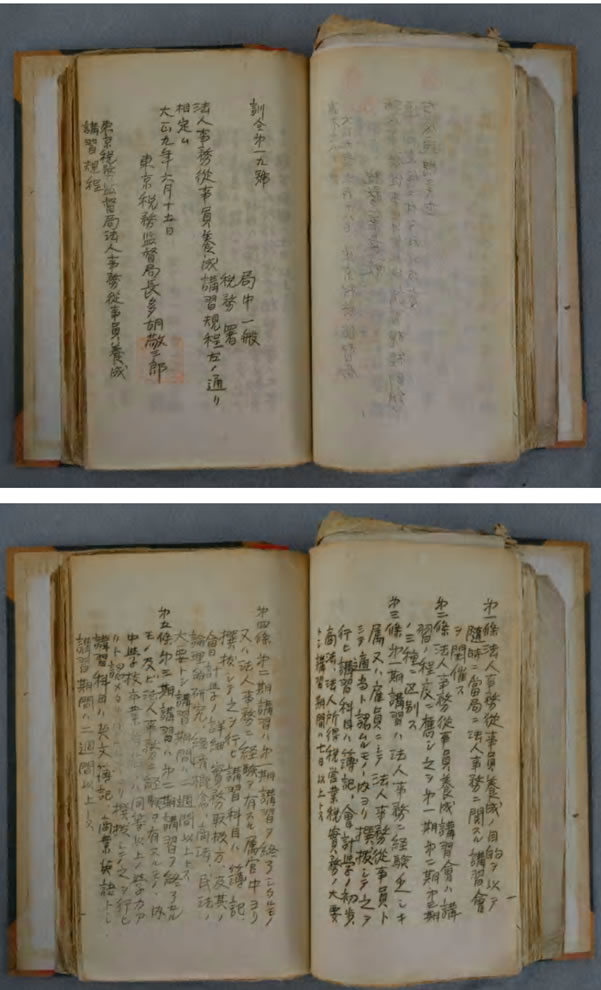 訓令第一九號
局中一般
税務署
法人事務從事員養成講習規程左ノ通リ
相定ム
大正九年六月十五日
東京税務監督局長多胡敬三郎
東京税務監督局法人事務從事員養成
講習規程
第一條法人事務從事員養成ノ目的ヲ以テ
隨時ニ當局ニ法人事務ニ関スル講習會
ヲ開催ス
第二條法人事務從事員養成講習會ハ講
習ノ程度ニ應シ之ヲ第一期第二期第三期
ノ三種ニ区別ス
第三條第一期講習ハ法人事務ニ経験乏シキ
属又ハ雇員ニシテ法人事務從事員ト
シテ適当ト認ムルモノヨリ撰抜シテ之ヲ
行ヒ講習科目ハ簿記、會計學ノ初歩、
商法、法人所得税営業税実務ノ大要
トシ講習期間ハ七日以上トス
第四條第二期講習ハ第一期講習ヲ終了シタルモノ
又ハ法人事務ニ経験ヲ有スル属官中ヨリ
撰抜シテ之ヲ行ヒ講習科目ハ簿記
會計學ノ詳細、實務取扱方及其ノ
論理的研究、経済概念、商法、民法ノ
大要トシ講習期間ハ二週間以上トス
第五條第三期講習ハ第二期講習ヲ終了セル
モノ及ヒ法人事務ニ経験ヲ有スルモノ
中學校卒業 同等以上ノ學力ア
リト認メ 撰抜シテ之ヲ行ヒ
講習科目ハ英文簿記、商業英語トシ
講習期間ハ二週間以上トス